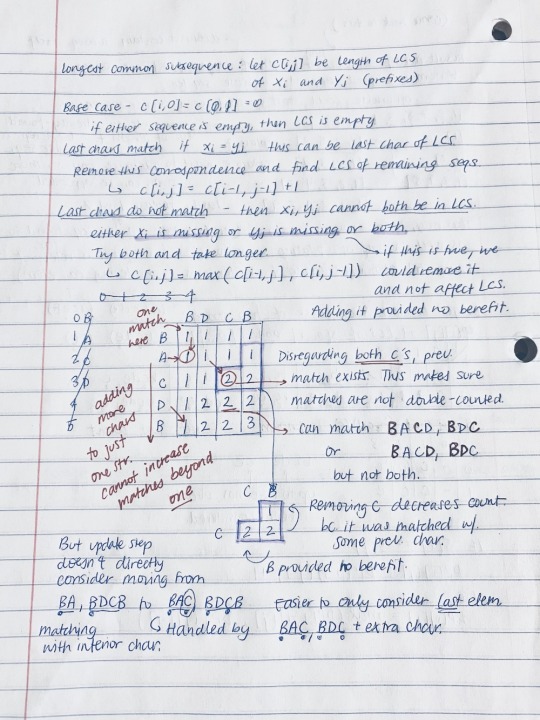 Longest common subsequence: let c[i,j] be length of LCS
of Xi and Yj (prefixes)
Base case - c[i,0] = c[0,j] = 0
if either sequence is empty, then LCS is empty
Last chars match if xi = yj this can be last char of LCS.
Remove this correspondence and find LCS of remaining seqs.
↳ c[i,j] = c[i-1, j-1] + 1
Last chars do not match - then xi, yj cannot both be in LCS.
either xi is missing or yj is missing or both.
Try both and take longer.
↳ c[i,j] = max(c[i-1,j], c[i,j-1])
→ if this is true, we
could remove it
and not affect LCS.
Adding it provided no benefit.
0 1 2 3 4
0 B
1 A
2 C
3 D
4
5
one
match
here
B D C B
B 1 1 1 1
A → 1 1 1 1
C 1 1 2 2
D 1 2 2 2
B 1 2 2 3
adding
more
chars
to just
one str.
cannot increase
matches beyond
one
Disregarding both C's, prev.
match exists. This makes sure
matches are not double-counted.
can match BACD, BDC
or BACD, BDC
but not both.
C B
1
C 2 2
Removing C decreases count
bc it was matched w/
some prev. char.
B provided no benefit.
But update step
doesn't directly
consider moving from
BA, BDCB to BAC, BDCB
matching
with interior char.
↳ Handled by BAC, BDC + extra char.
Easier to only consider last elem